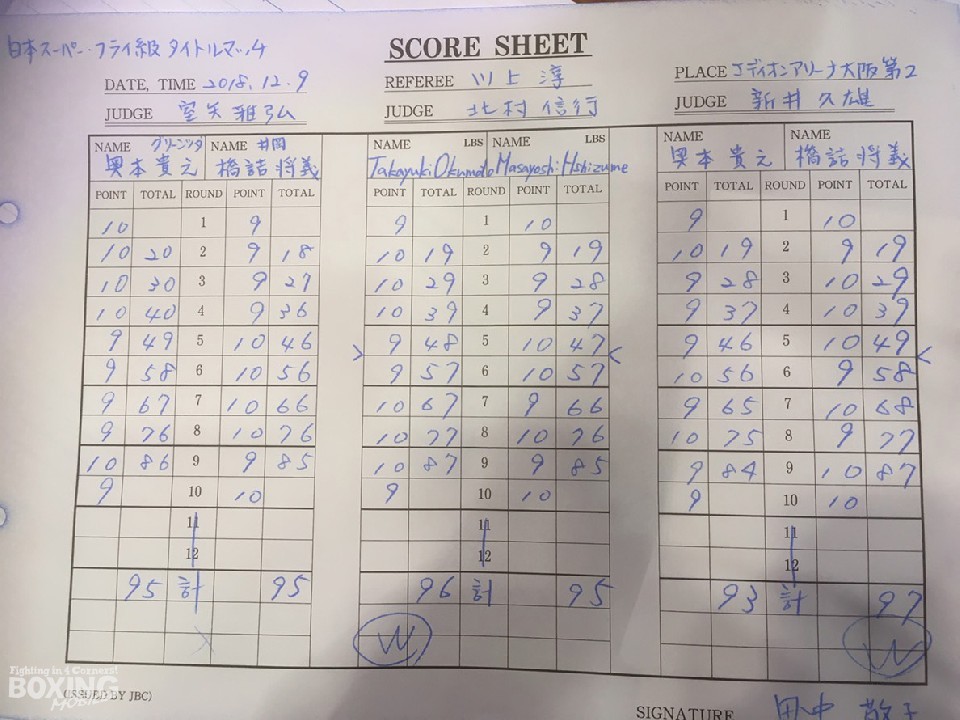 日本スーパー・フライ級 タイトルマッチ
SCORE SHEET
DATE, TIME 2018.12.9
REFEREE 川上 淳
PLACE エディオンアリーナ大阪第2
JUDGE 宮矢雅弘
JUDGE 北村信行
JUDGE 新井久雄
NAME グリーンツダ NAME 井岡
奥本貴之 橋詰将義
POINT TOTAL ROUND POINT TOTAL
10 1 9
10 20 2 9 18
10 30 3 9 27
10 40 4 9 36
9 49 5 10 46
9 58 6 10 56
9 67 7 10 66
9 76 8 10 76
10 86 9 9 85
9 10 10
11
12
95 計 95
NAME LBS NAME LBS
Takayuki Okumoto Masayoshi Hashizume
POINT TOTAL ROUND POINT TOTAL
9 1 10
10 19 2 9 19
10 29 3 9 28
10 39 4 9 37
9 48 5 10 47
9 57 6 10 57
10 67 7 9 66
10 77 8 10 76
10 87 9 9 85
9 10 10
11
12
96 計 95
W
NAME NAME
奥本貴之 橋詰将義
POINT TOTAL ROUND POINT TOTAL
9 1 10
10 19 2 9 19
9 28 3 10 29
9 37 4 10 39
9 46 5 10 49
10 56 6 9 58
9 65 7 10 68
10 75 8 9 77
9 84 9 10 87
9 10 10
11
12
93 計 97
W
Fighting in 4 Corners!
BOXING
MOBILES
(ISSUED BY JBC)
SIGNATURE 田中 敬子